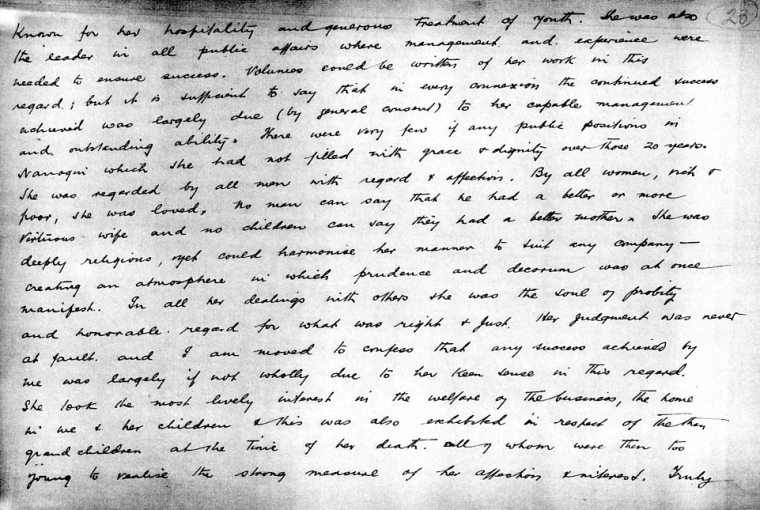 28
Known for her hospitality and generous treatment of youth. She was also
the leader in all public affairs where management and experience were
needed to ensure success. Volumes could be written of her work in this
regard; but it is sufficient to say that in every connexion the continued success
achieved was largely due (by general consent) to her capable management
and outstanding ability. There were very few if any public positions in
Nanango which she had not filled with grace & dignity over those 20 years.
She was regarded by all men with regard & affection. By all women, rich &
poor, she was loved. No man can say that he had a better or more
virtuous wife and no children can say they had a better mother. She was
deeply religious, yet could harmonise her manner to suit any company —
creating an atmosphere in which prudence and decorum was at once
manifest. In all her dealings with others she was the soul of probity
and honorable regard for what was right & just. Her judgment was never
at fault and I am moved to confess that any success achieved by
me was largely if not wholly due to her keen sense in this regard.
She took the most lively interest in the welfare of the business, the home
in me & her children & this was also exhibited in respect of the then
grandchildren at the time of her death. all of whom were then too
young to realise the strong measure of her affection & interest. Truly